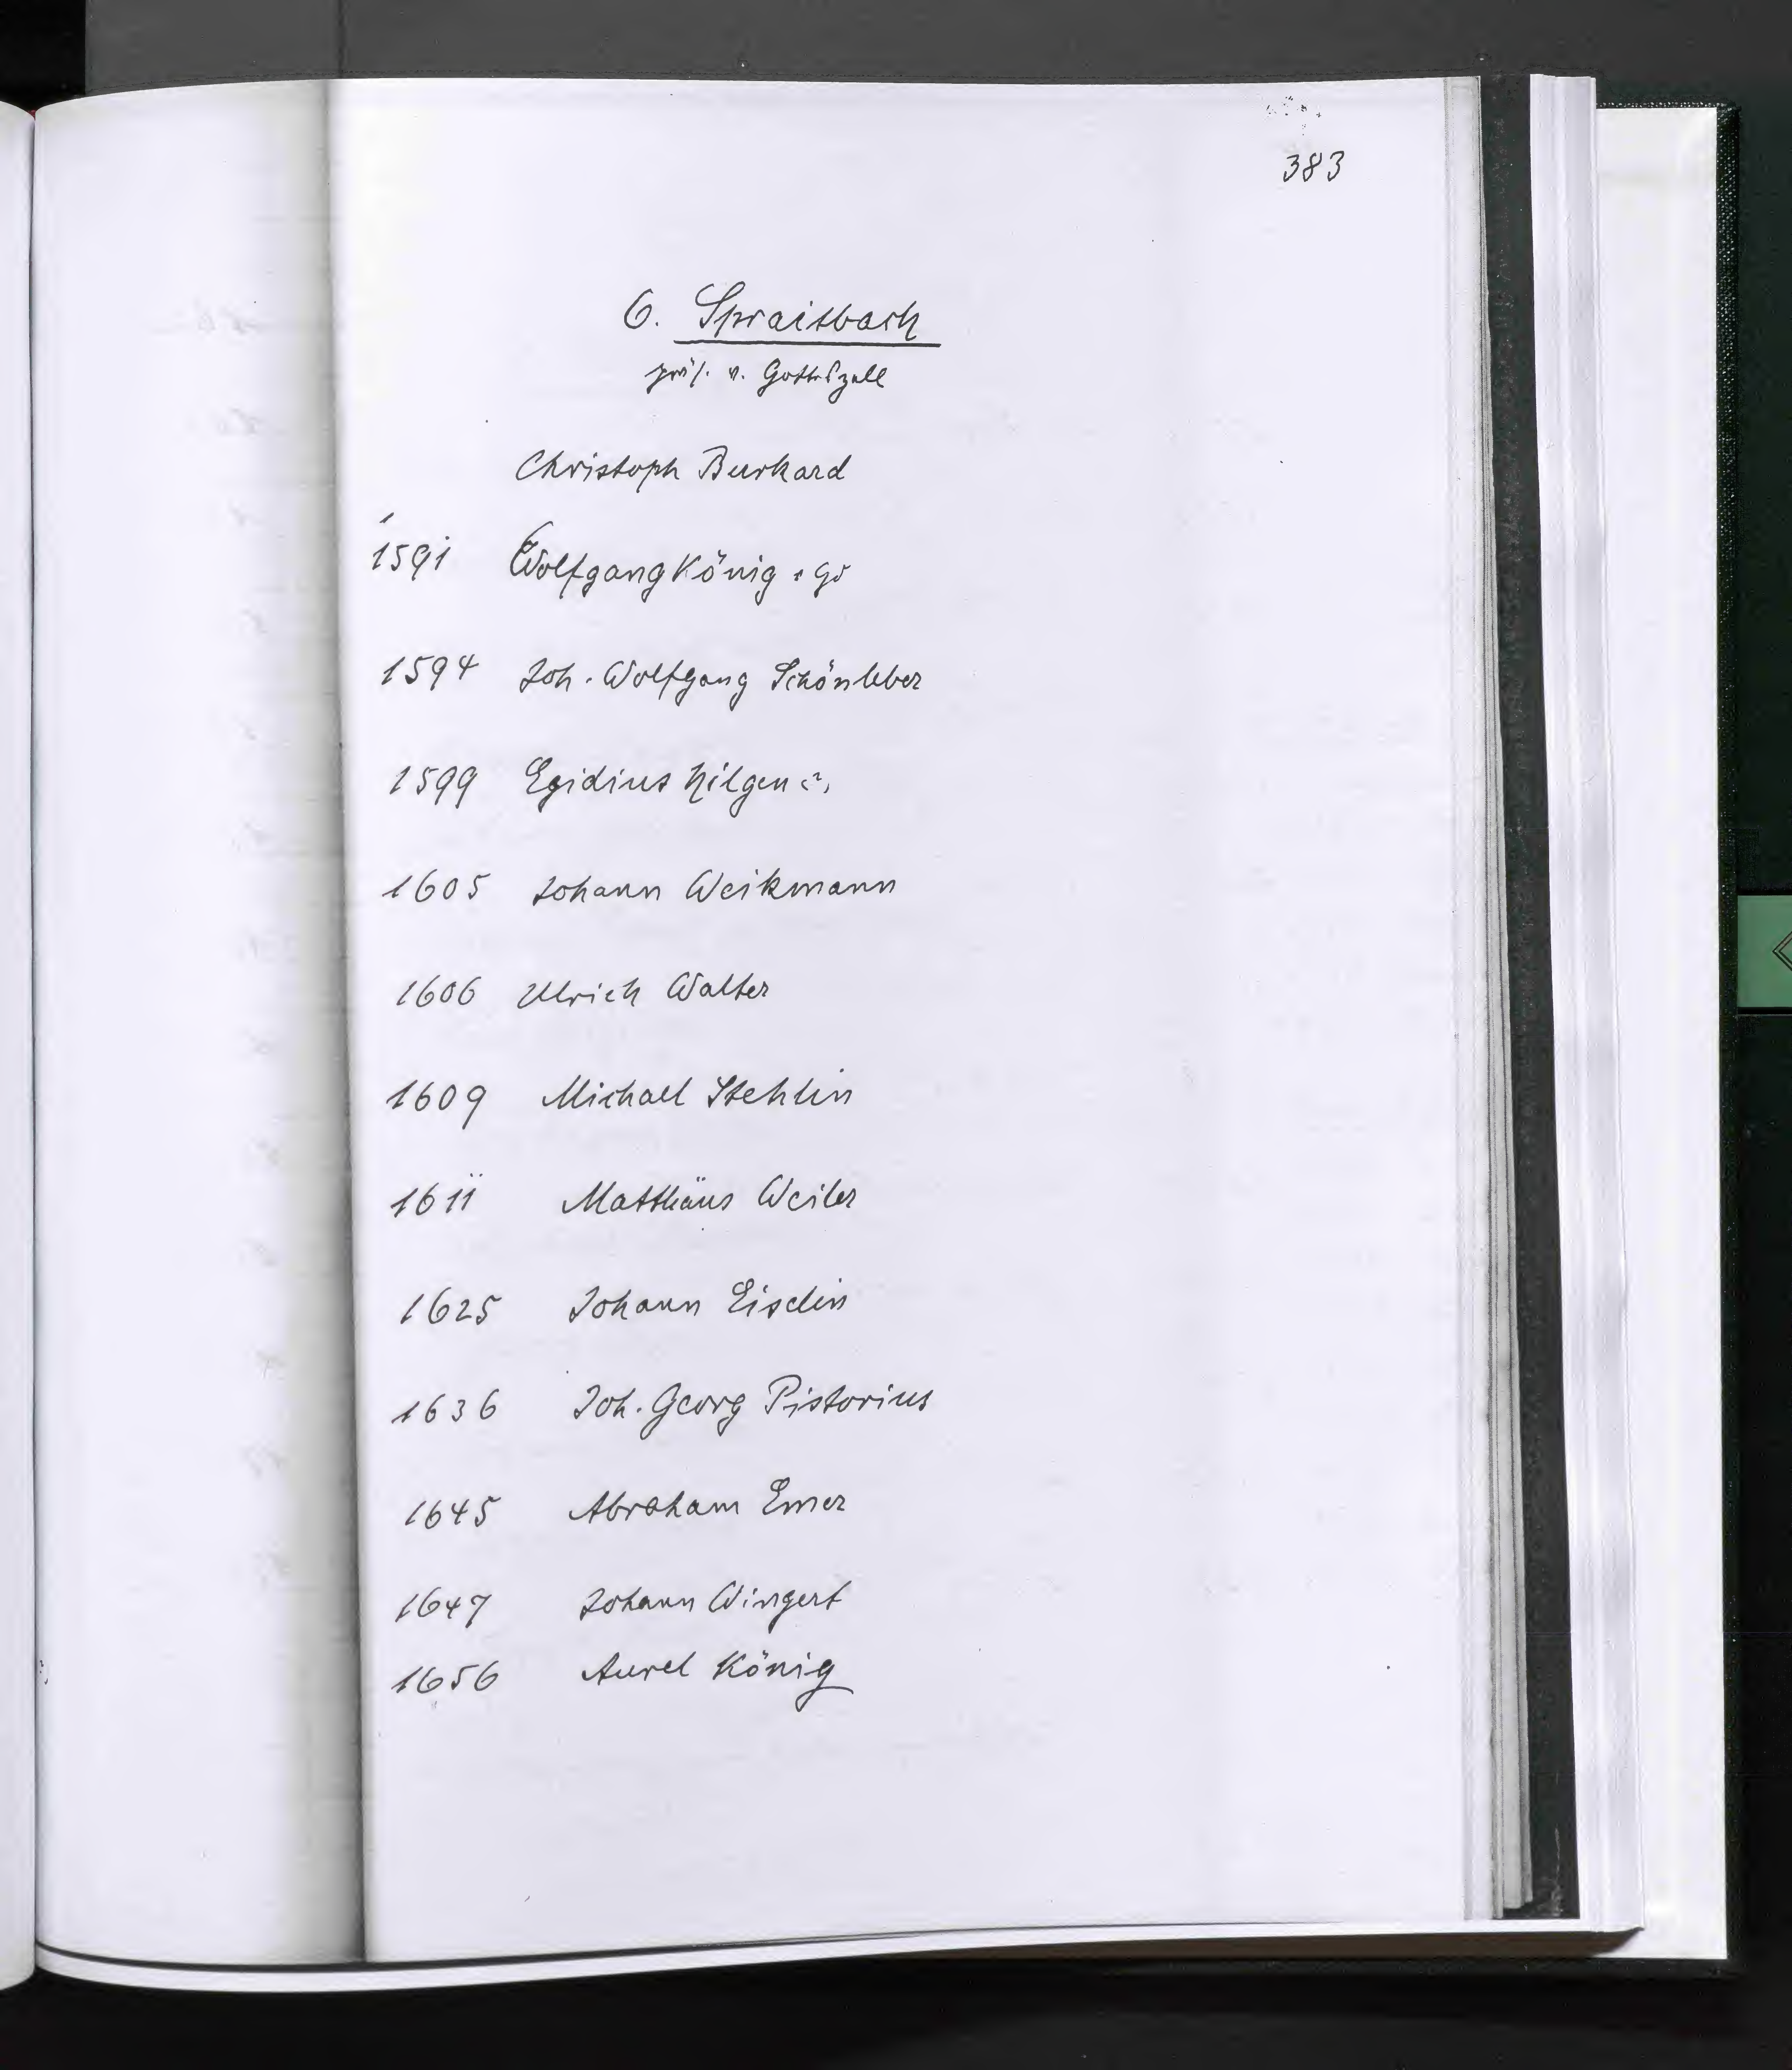 383
6. Spraitbach
präs. v. Gotteszell
Christoph Burkard
1591 Wolfgang König
1594 Joh. Wolfgang Schönleber
1599 Egidius hilgen
1605 Johann Weikmann
1606 Ulrich Walter
1609 Michael Stehlin
1611 Matthäus Weiler
1625 Johann Eiselin
1636 Joh. Georg Pistorius
1645 Abraham Emer
1647 Johann Wingert
1656 Aurel König